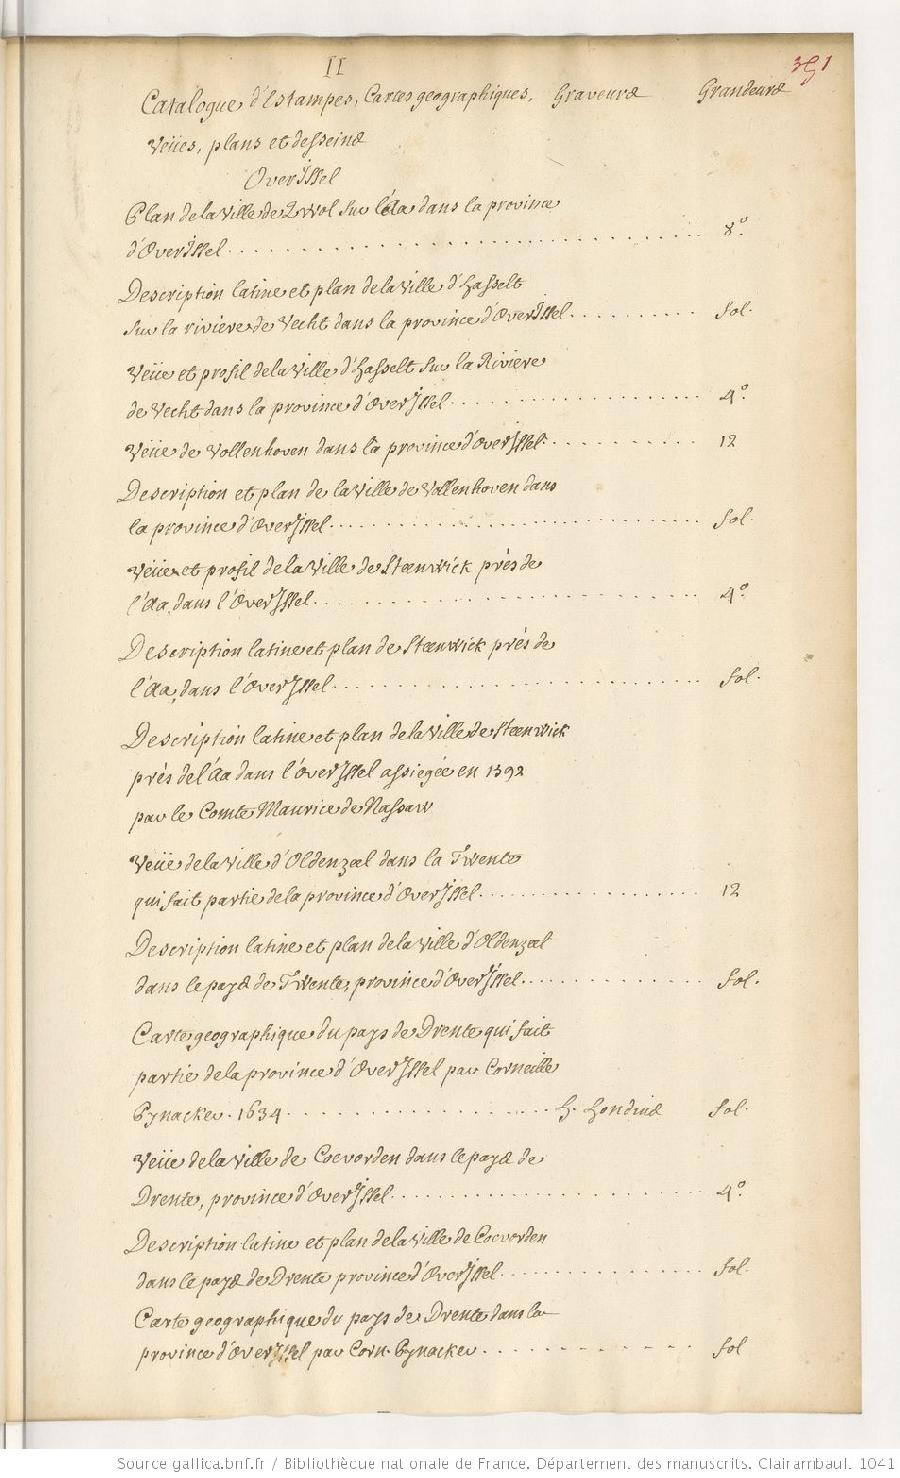 II
351
Catalogue d'Estampes, Cartes geographiques, Graveurs Grandeurs
Veües, plans et desseins
OverIssel
Plan de la Ville de Zwol sur l'Aa dans la province
d'OverIssel. 8°.
Description latine et plan de la Ville d'Hasselt
sur la riviere de Vecht dans la province d'OverIssel. fol.
Veüe et profil de la Ville d'Hasselt sur la Riviere
de Vecht dans la province d'OverIssel. 4°.
Veüe de Vollenhoven dans la province d'OverIssel. 12
Description et plan de la Ville de Vollenhoven dans
la province d'OverIssel. fol.
Veüe et profil de la Ville de Steenwick près de
l'Aa, dans l'OverIssel. 4°.
Description latine et plan de Steenwick près de
l'Aa, dans l'OverIssel. fol.
Description latine et plan de la Ville de Steenwick
près de l'Aa dans l'OverIssel assiegée en 1592
par le Comte Maurice de Nassaw
Veüe de la Ville d'Oldenzeel dans la Twente
qui fait partie de la province d'OverIssel. 12
Description latine et plan de la Ville d'Oldenzeel
dans le pays de Twente, province d'OverIssel. fol.
Carte geographique du pays de Drente qui fait
partie de la province d'OverIssel par Corneille
Pynacker. 1634. H. Hondius fol.
Veüe de la Ville de Coevorden dans le pays de
Drente, province d'OverIssel. 4°
Description latine et plan de la Ville de Coevorden
dans le pays de Drente province d'OverIssel. fol.
Carte geographique du pays de Drente dans la
province d'OverIssel par Corn. Pynacker. fol
Source gallica.bnf.fr / Bibliothèque nationale de France. Département des manuscrits. Clairambault. 1041